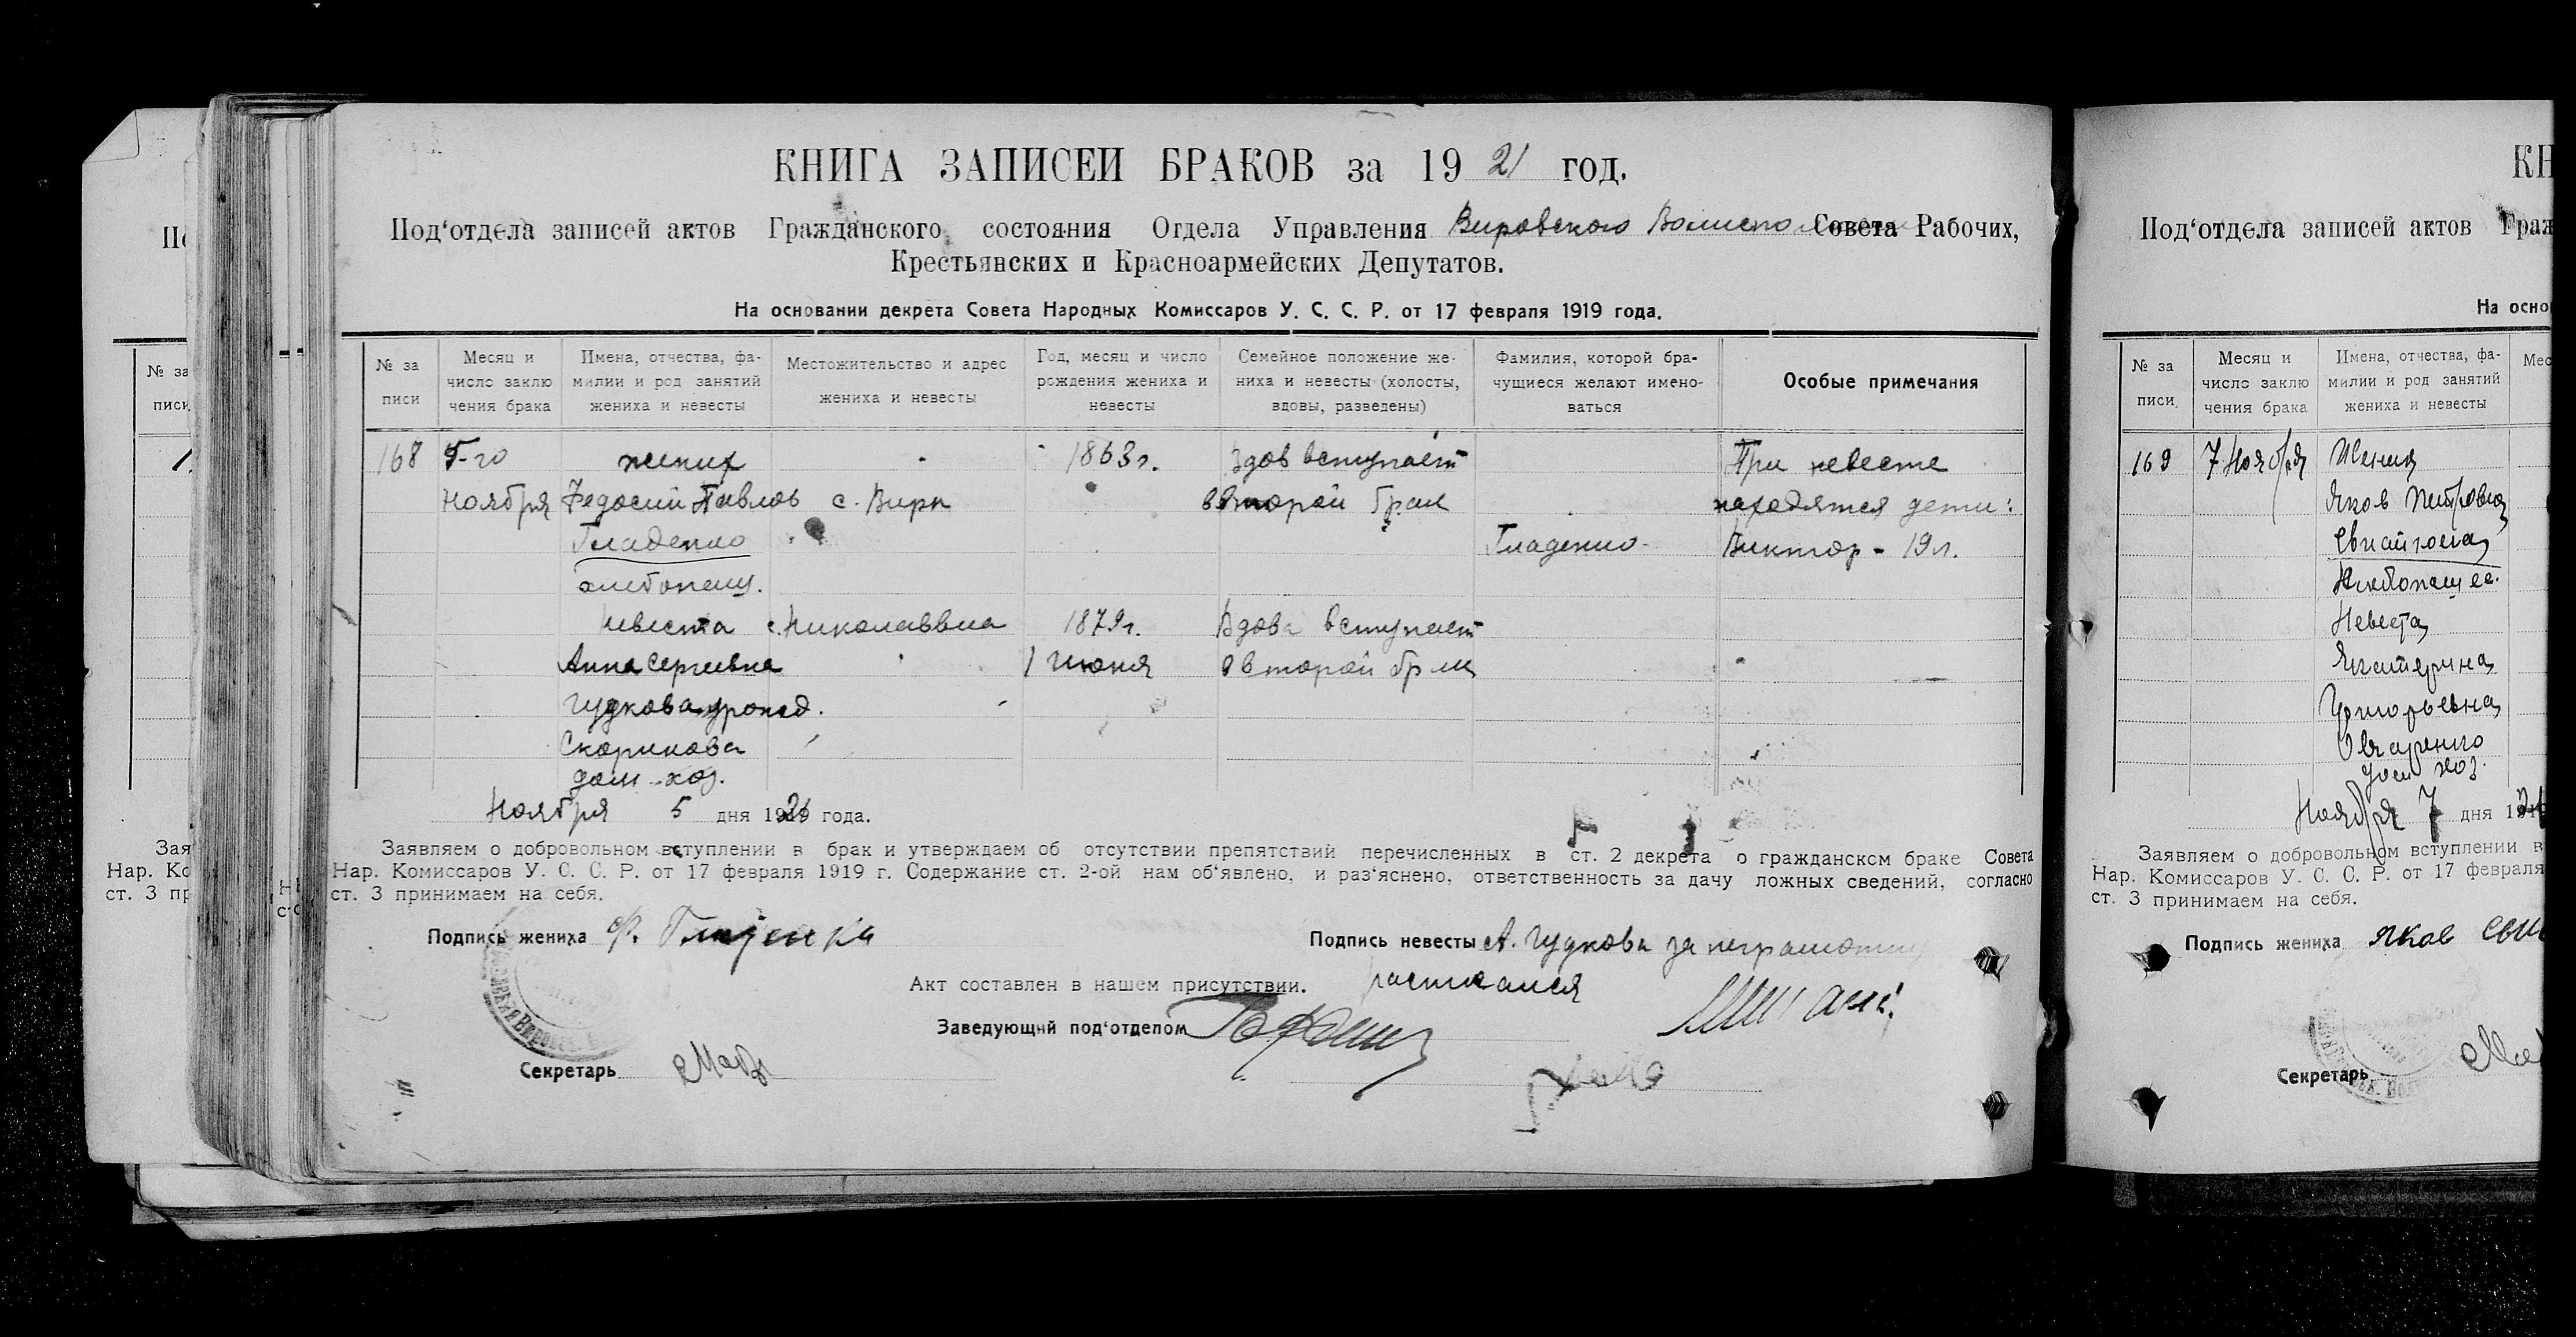 КНИГА ЗАПИСЕЙ БРАКОВ за 1921 год.
Под‘отдела записей актов Гражданского состояния Отдела Управления Вировского Совета Рабочих,
Крестьянских и Красноармейских Депутатов.
На основании декрета Совета Народных Комиссаров У. С. С. Р. от 17 февраля 1919 года.
№ за писи
Месяц и число заклю чения брака
Имена, отчества, фа- милии и род занятий жениха и невесты
Местожительство и адрес жениха и невесты
Год, месяц и число рождения жениха и невесты
Семейное положение же- ниха и невесты (холосты, вдовы, разведены)
Фамилия, которой бра- чущиеся желают имено- ваться
Особые примечания
168 5-го жених 1863 г. Вдов вступает При невесте
ноября Федосий Павлов с. Виры во второй брак находятся дети:
Гладенко Гладенко Виктор - 19 л.
хлебопаш.
невеста с. Николаевка 1879 г. Вдова вступает
Анна Сергеевна 1 июня во второй брак
Гудкова урожд.
Скорикова
дом. хоз.
Ноября 5 дня 1921 года.
Заявляем о добровольном вступлении в брак и утверждаем об отсутствии препятствий перечисленных в ст. 2 декрета о гражданском браке Совета
Нар. Комиссаров У. С. С. Р. от 17 февраля 1919 г. Содержание ст. 2-ой нам об‘явлено, и раз‘яснено, ответственность за дачу ложных сведений, согласно
ст. 3 принимаем на себя.
Подпись жениха Ф. Гладенка
Подпись невесты А. Гудкова за неграмотную
Акт составлен в нашем присутствии. расписался
Заведующий под‘отделом
Секретарь
КН
Под‘отдела записей актов Граж
На осно
№ за писи
Месяц и число заклю чения брака
Имена, отчества, фа- милии и род занятий жениха и невесты
Мес
169 7 Ноября Жених
Яков Петрович
Хлебопашец.
Невеста
Екатерина
Григорьевна
Овчаренко
дом хоз.
Ноября 7 дня 19
Заявляем о добровольном вступлении в
Нар. Комиссаров У. С. С. Р. от 17 февраля
ст. 3 принимаем на себя.
Подпись жениха Яков
Секретарь
№ за
писи
Зая
Нар. Ко
ст. 3 пр